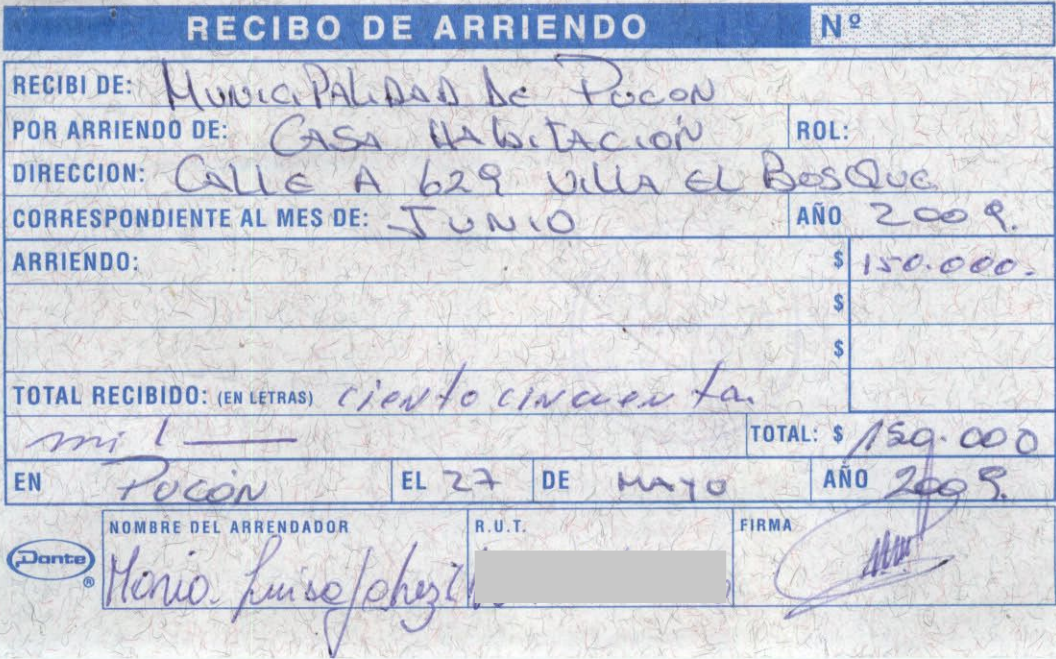 RECIBO DE ARRIENDO Nº
RECIBI DE: MUNICIPALIDAD DE PUCON
POR ARRIENDO DE: CASA HABITACIÓN ROL:
DIRECCION: CALLE A 629 VILLA EL BOSQUE
CORRESPONDIENTE AL MES DE: JUNIO AÑO 2009.
ARRIENDO: $ 150.000.
$
$
TOTAL RECIBIDO: (EN LETRAS) ciento cincuenta
mil TOTAL: $ 150.000
EN PUCÓN EL 27 DE MAYO AÑO 2009.
NOMBRE DEL ARRENDADOR R.U.T. FIRMA
Dante ®
Maria Luisa